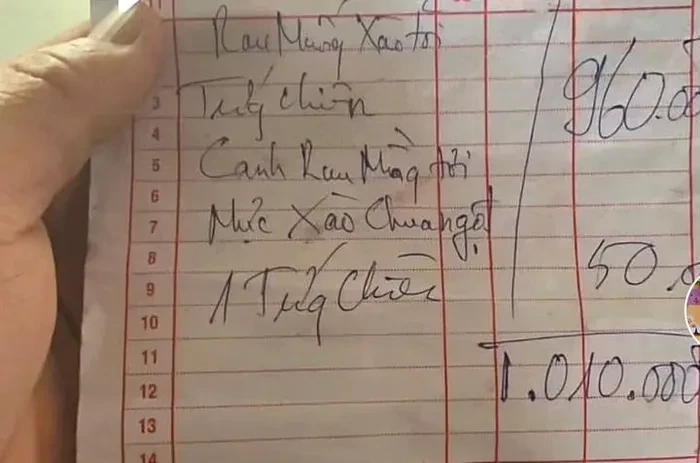 Rau Muống Xào tỏi
960.00
3 Trứng chiên
4
5 Canh Rau Mồng tơi
6
7 Mực Xào Chua ngọt
8
50.0
9 1 Trứng Chiên
10
11
1.010.000
12
13
14